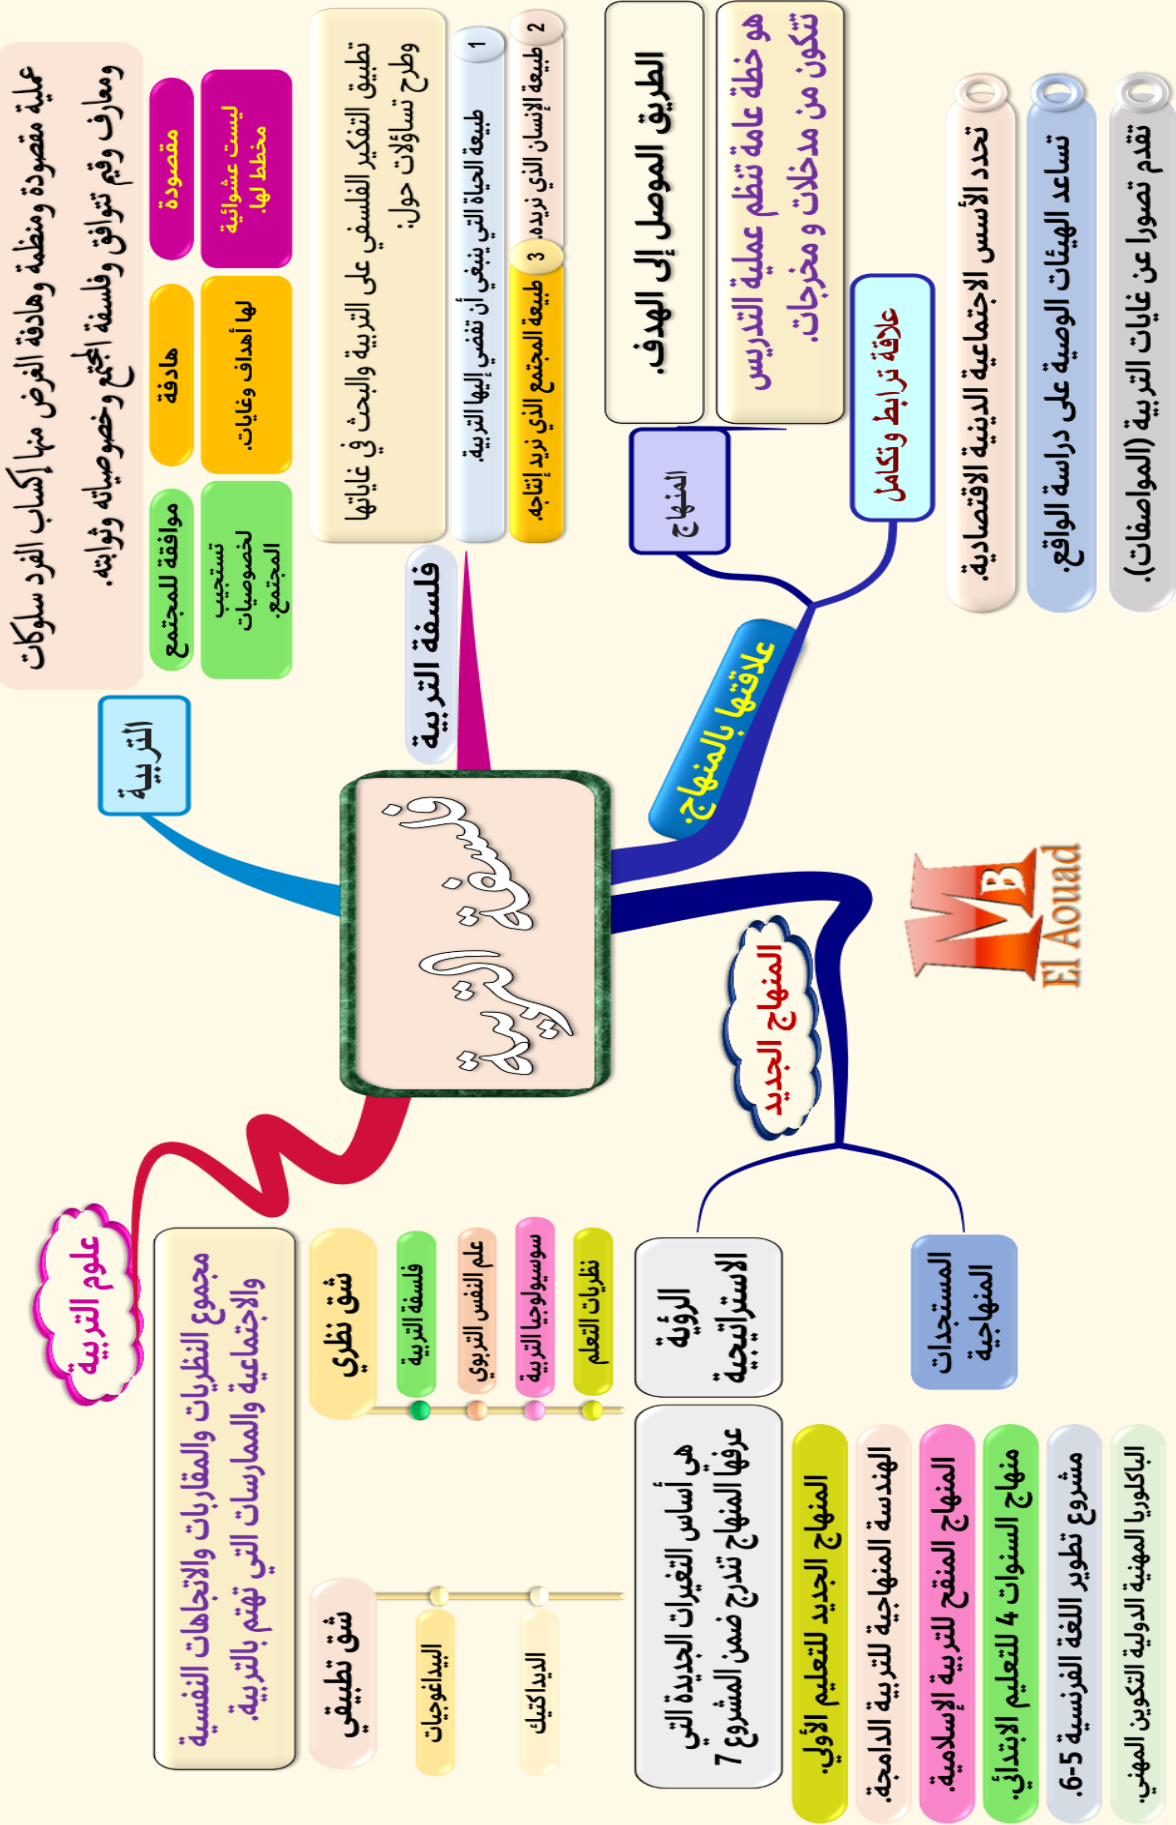 فلسفة التربية
التربية
عملية مقصودة ومنظمة وهادفة الغرض منها إكساب الفرد سلوكات
ومعارف وقيم تتوافق وفلسفة المجتمع وخصوصياته وثوابته.
مقصودة
ليست عشوائية
مخطط لها.
هادفة
لها أهداف وغايات.
موافقة للمجتمع
تستجيب
لخصوصيات
المجتمع.
فلسفة التربية
تطبيق التفكير الفلسفي على التربية والبحث في غاياتها
وطرح تساؤلات حول:
1 طبيعة الحياة التي ينبغي أن تفضي إليها التربية.
2 طبيعة الإنسان الذي نريده.
3 طبيعة المجتمع الذي نريد إنتاجه.
علاقتها بالمنهاج.
المنهاج
الطريق الموصل إلى الهدف.
هو خطة عامة تنظم عملية التدريس
تتكون من مدخلات و مخرجات.
علاقة ترابط وتكامل
تحدد الأسس الاجتماعية الدينية الاقتصادية.
تساعد الهيئات الوصية على دراسة الواقع.
تقدم تصورا عن غايات التربية (المواصفات).
المنهاج الجديد
الرؤية
الاستراتيجية
هي أساس التغيرات الجديدة التي
عرفها المنهاج تندرج ضمن المشروع 7
المستجدات
المنهاجية
المنهاج الجديد للتعليم الأولي.
الهندسة المنهاجية للتربية الدامجة.
المنهاج المنقح للتربية الإسلامية.
منهاج السنوات 4 للتعليم الابتدائي.
مشروع تطوير اللغة الفرنسية 5-6.
الباكلوريا المهنية الدولية التكوين المهني.
علوم التربية
مجموع النظريات والمقاربات والاتجاهات النفسية
والاجتماعية والممارسات التي تهتم بالتربية.
شق نظري
فلسفة التربية
علم النفس التربوي
سوسيولوجيا التربية
نظريات التعلم
شق تطبيقي
البيداغوجيات
الديداكتيك
MB
El Aouad